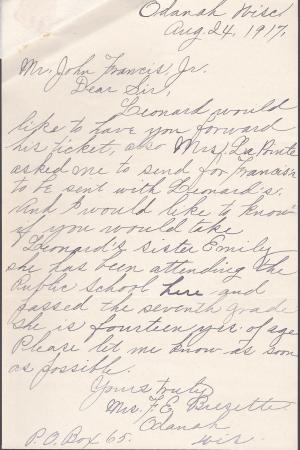 Odanah Wisc
Aug. 24, 1917.
Mr. John Francis, Jr.
Dear Sir,
Leonard would
like to have you forward
his ticket, also Mrs. La Pointe
asked me to send for Francis's
to be sent with Leonard's.
And I would like to know
if you would take
Leonard's sister Emily
she has been attending the
Public School here and
passed the seventh grade
She is fourteen yrs. of age
Please let me know as soon
as possible.
Yours truly
Mrs. F. E. Brezette
Odanah
Wis.
P.O. Box 65.